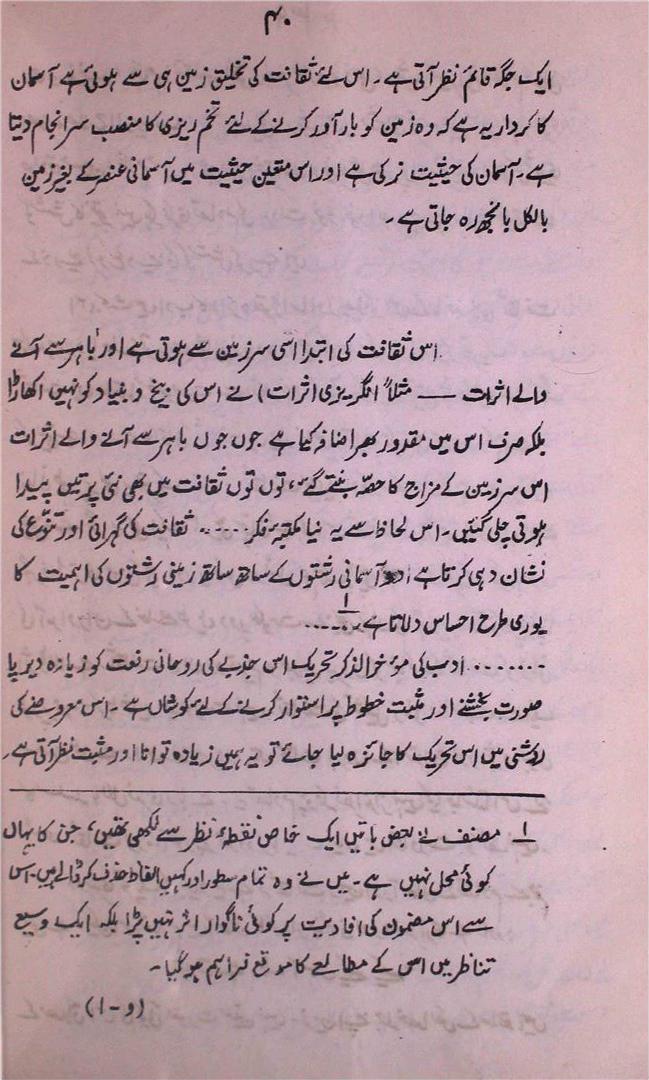 ۴۰
ایک جگہ قائم نظر آتی ہے۔ اس لئے ثقافت کی تخلیق زمین ہی سے ہوئی ہے آسمان
کا کردار یہ ہے کہ وہ زمین کو بارآور کرنے کے لئے تخم ریزی کا منصب سرانجام دیتا
ہے۔ آسمان کی حیثیت نر کی ہے اور اس متعین حیثیت میں آسمانی عنصر کے بغیر زمین
بالکل بانجھ رہ جاتی ہے۔
اس ثقافت کی ابتدا اسی سرزمین سے ہوتی ہے اور باہر سے آنے
والے اثرات — مثلاً انگریزی اثرات) نے اس کی بیخ و بنیاد کو نہیں اکھاڑا
بلکہ صرف اس میں مقدور بھر اضافہ کیا ہے جوں جوں باہر سے آنے والے اثرات
اس سرزمین کے مزاج کا حصہ بنتے گئے، توں توں ثقافت میں بھی نئی پرتیں پیدا
ہوتی چلی گئیں۔ اس لحاظ سے یہ نیا مکتبۂ فکر ..... ثقافت کی گہرائی اور تنوع کی
نشان دہی کرتا ہے اور آسمانی رشتوں کے ساتھ ساتھ زمینی رشتوں کی اہمیت کا
پوری طرح احساس دلاتا ہے۔۱.....
....... ادب کی مؤخرالذکر تحریک اس جذبے کی روحانی رفعت کو زیادہ دیرپا
صورت بخشنے اور مثبت خطوط پر استوار کرنے کے لئے کوشاں ہے۔ اس معروضے کی
روشنی میں اس تحریک کا جائزہ لیا جائے تو یہ ہمیں زیادہ توانا اور مثبت نظر آتی ہے۔
۱ مصنف نے بعض باتیں ایک خاص نقطۂ نظر سے لکھی تھیں، جن کا یہاں
کوئی محل نہیں ہے۔ میں نے وہ تمام سطور اور کہیں الفاظ حذف کر ڈالے ہیں۔ اس
سے اس مضمون کی افادیت پر کوئی ناگوار اثر نہیں پڑا بلکہ ایک وسیع
تناظر میں اس کے مطالعے کا موقع فراہم ہو گیا۔
(و-ا)